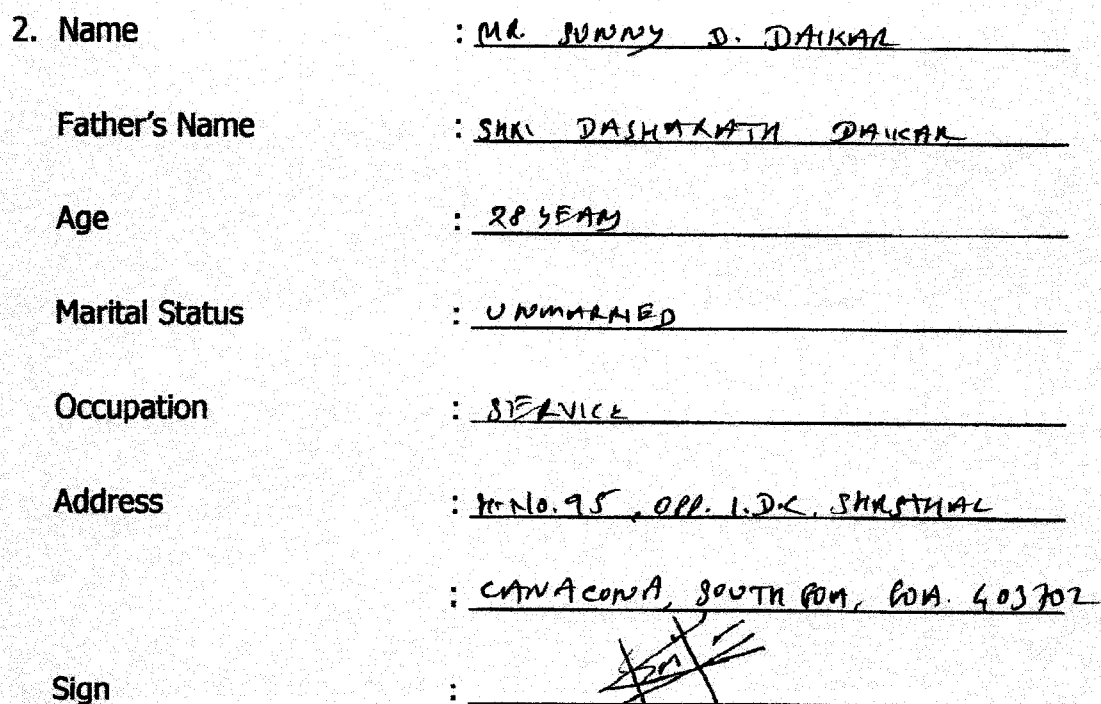 2. Name : MR. SUNNY D. DAIKAR
Father's Name : SHRI DASHARATH DAIKAR
Age : 28 YEARS
Marital Status : UNMARRIED
Occupation : SERVICE
Address : H.No. 95, OPP. I.D.C, SHRISTHAL
: CANACONA, SOUTH GOA, GOA. 403702
Sign :